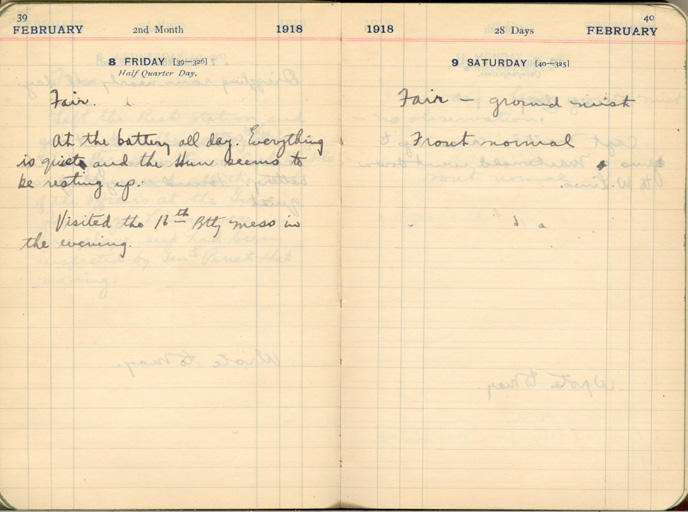 39
FEBRUARY 2nd Month 1918
8 FRIDAY [39-326]
Half Quarter Day.
Fair.
At the battery all day. Everything
is quiet and the Hun seems to
be resting up.
Visited the 16th Btty mess in
the evening.
40
1918 28 Days FEBRUARY
9 SATURDAY [40-325]
Fair - ground mist
Front normal